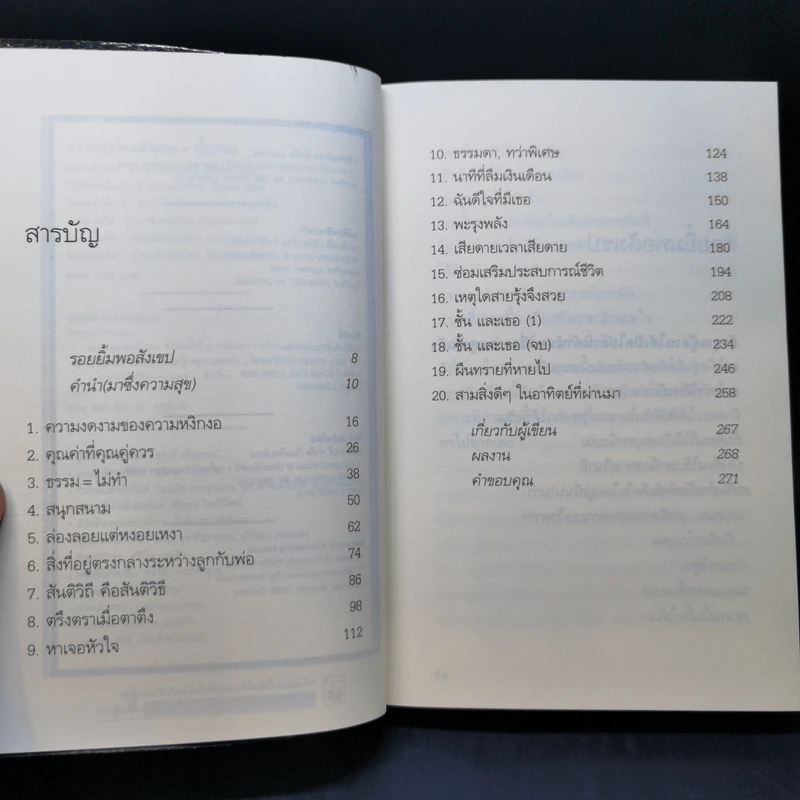 สารบัญ
รอยยิ้มพอสังเขป 8
คำนำ(มาซึ่งความสุข) 10
1. ความงดงามของความหงิกงอ 16
2. คุณค่าที่คุณคู่ควร 26
3. ธรรม = ไม่ทำ 38
4. สนุกสนาม 50
5. ล่องลอยแต่หงอยเหงา 62
6. สิ่งที่อยู่ตรงกลางระหว่างลูกกับพ่อ 74
7. สันติวิถี คือสันติวิธี 86
8. ตรึงตราเมื่อตาตึง 98
9. หาเจอหัวใจ 112
10. ธรรมดา, ทว่าพิเศษ 124
11. นาทีที่ลืมเงินเดือน 138
12. ฉันดีใจที่มีเธอ 150
13. พะรุงพลัง 164
14. เสียดายเวลาเสียดาย 180
15. ซ่อมเสริมประสบการณ์ชีวิต 194
16. เหตุใดสายรุ้งจึงสวย 208
17. ชั้น และเธอ (1) 222
18. ชั้น และเธอ (จบ) 234
19. ผืนทรายที่หายไป 246
20. สามสิ่งดีๆ ในอาทิตย์ที่ผ่านมา 258
เกี่ยวกับผู้เขียน 267
ผลงาน 268
คำขอบคุณ 271